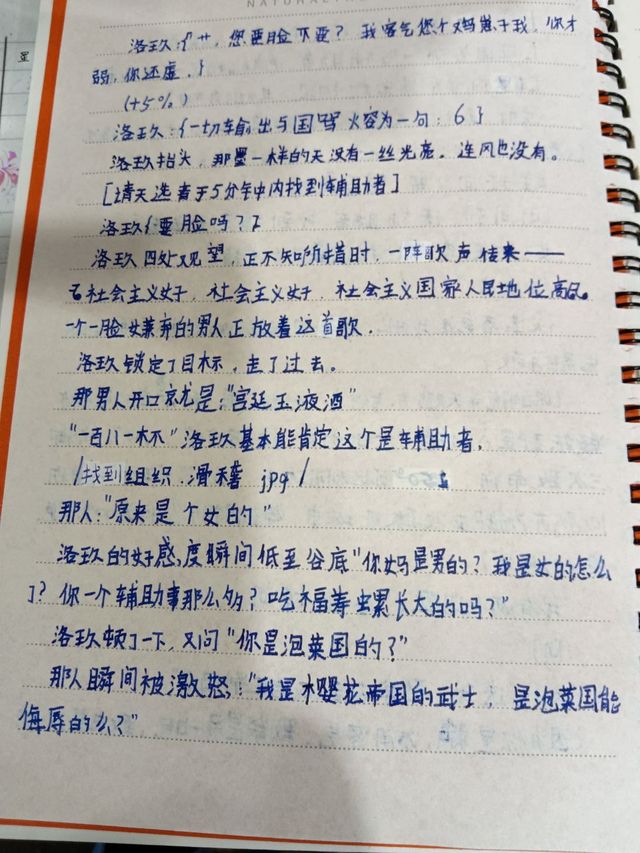 NATURAL
洛玖:{艹,您要脸不要?我客气您个妈崽子我,你才
弱,你还虚.}
(+5%)
洛玖:{一切输出与国骂火容为一句:6}
洛玖抬头,那墨一样的天没有一丝光亮.连风也没有。
[请天选者于5分钟内找到辅助者]
洛玖{要脸吗?}
洛玖四处观望,正不知所措时,一阵歌声传来——
社会主义好,社会主义好,社会主义国家人民地位高
一个一脸嫌弃的男人正放着这首歌.
洛玖锁定了目标,走了过去。
那男人开口就是:"宫廷玉液酒"
"一百八一杯"洛玖基本能肯定这个是辅助者.
/找到组织.滑稽jpg/
那人:"原来是个女的"
洛玖的好感度瞬间低至谷底"你妈是男的?我是女的怎么
了?你一个辅助事那么多?吃福寿螺长大的吗?"
洛玖顿了一下,又问"你是泡菜国的?"
那人瞬间被激怒:"我是木婴花帝国的武士,是泡菜国能
侮辱的么?"